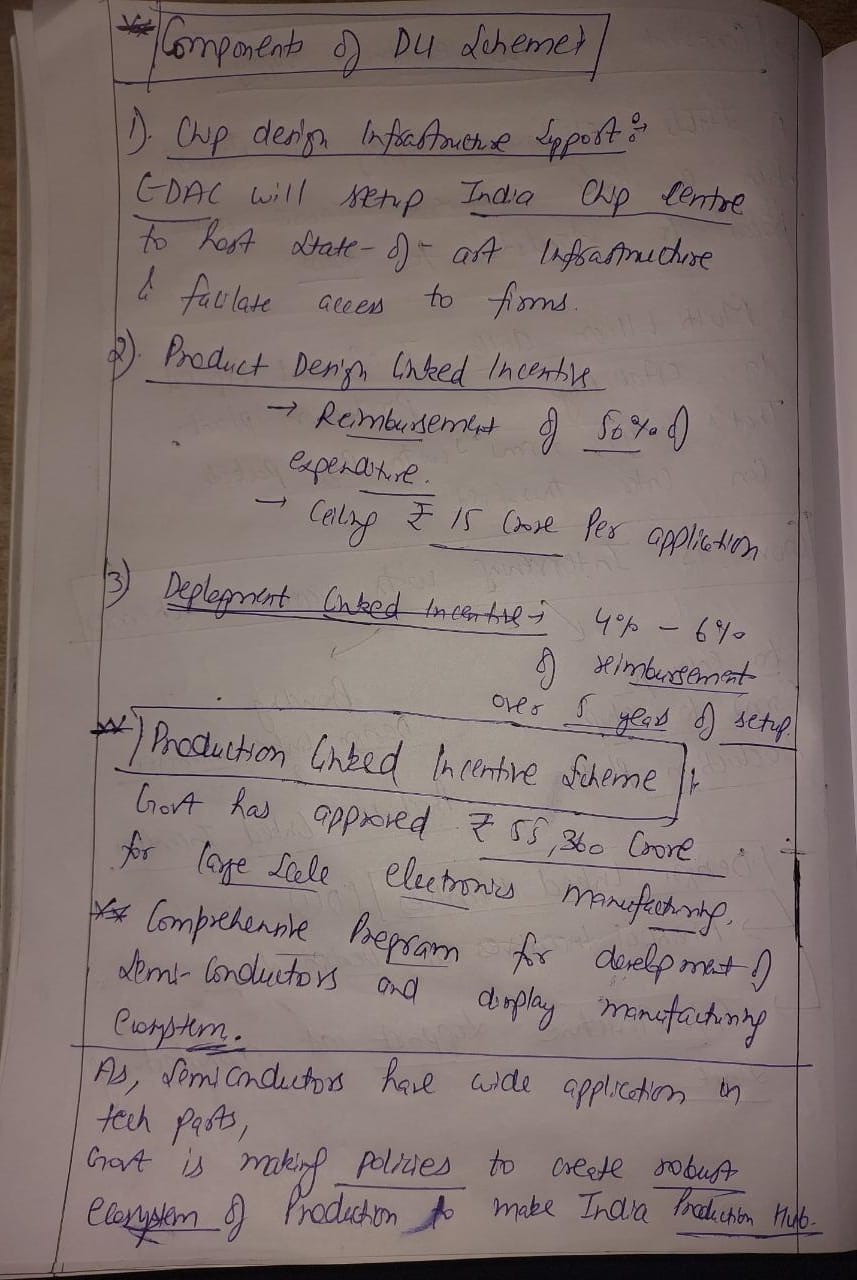 Components of DLI Scheme:
1). Chip design Infrastructure Support:→
C-DAC will setup India Chip Centre
to host State-of-art Infrastructure
& facilate access to firms.
2). Product Design Linked Incentive
→ Reimbursement of 50% of
expenditure.
→ Ceiling ₹ 15 Crore Per application
3) Deployment Linked Incentive: 4% - 6%
of reimbursement
over 5 years of setup.
Production Linked Incentive Scheme:
Govt has approved ₹ 55,360 Crore
for large Scale electronics manufacturing.
Comprehensive Program for development of
Semi-Conductors and display manufacturing
Ecosystem.
As, Semi Conductors have wide application in
tech parts,
Govt is making policies to create robust
ecosystem of Production to make India Production Hub.